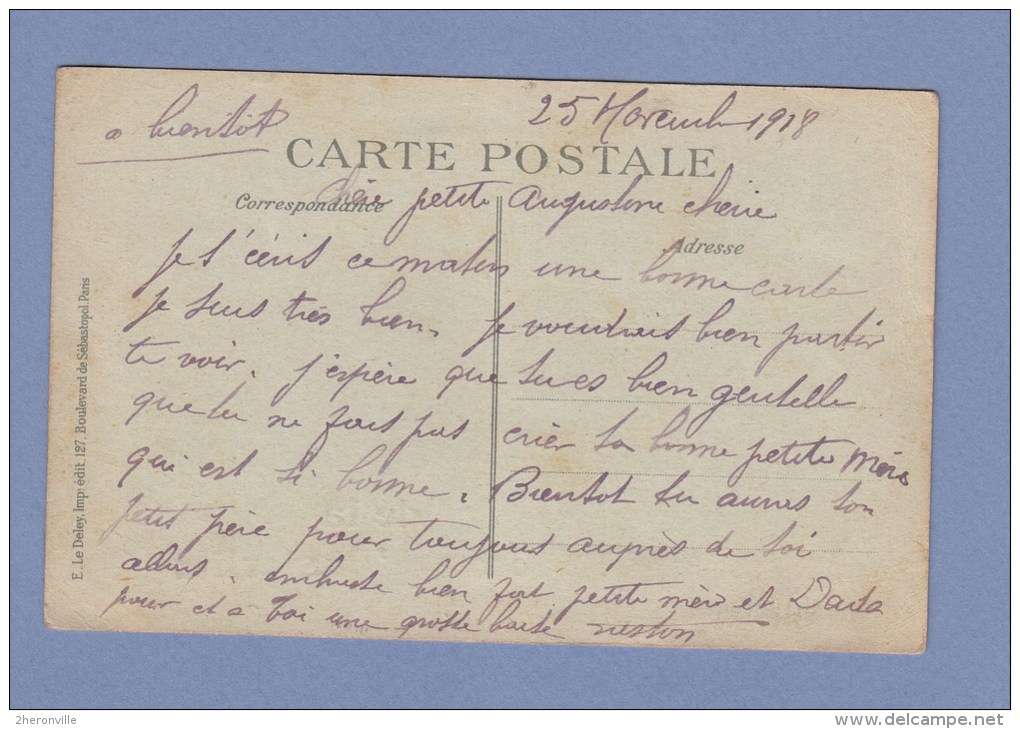 25 Novemb 1918
a bientôt
CARTE POSTALE
Chère petite Augustine cherie
Correspondance
Adresse
je t'écris ce matin une bonne carte
je suis très bien. je voudrais bien partir
te voir. j'espère que tu es bien gentille
que tu ne fais pas crier ta bonne petite mère
qui est si bonne. Bientot tu auras ton
petit père pour toujours auprès de toi
allons. embrasse bien fort petite mère et Dada
pour et à toi une grosse
E. Le Deley, Imp: édit. 127, Boulevard de Sébastopol. Paris
2heronville
www.delcampe.net